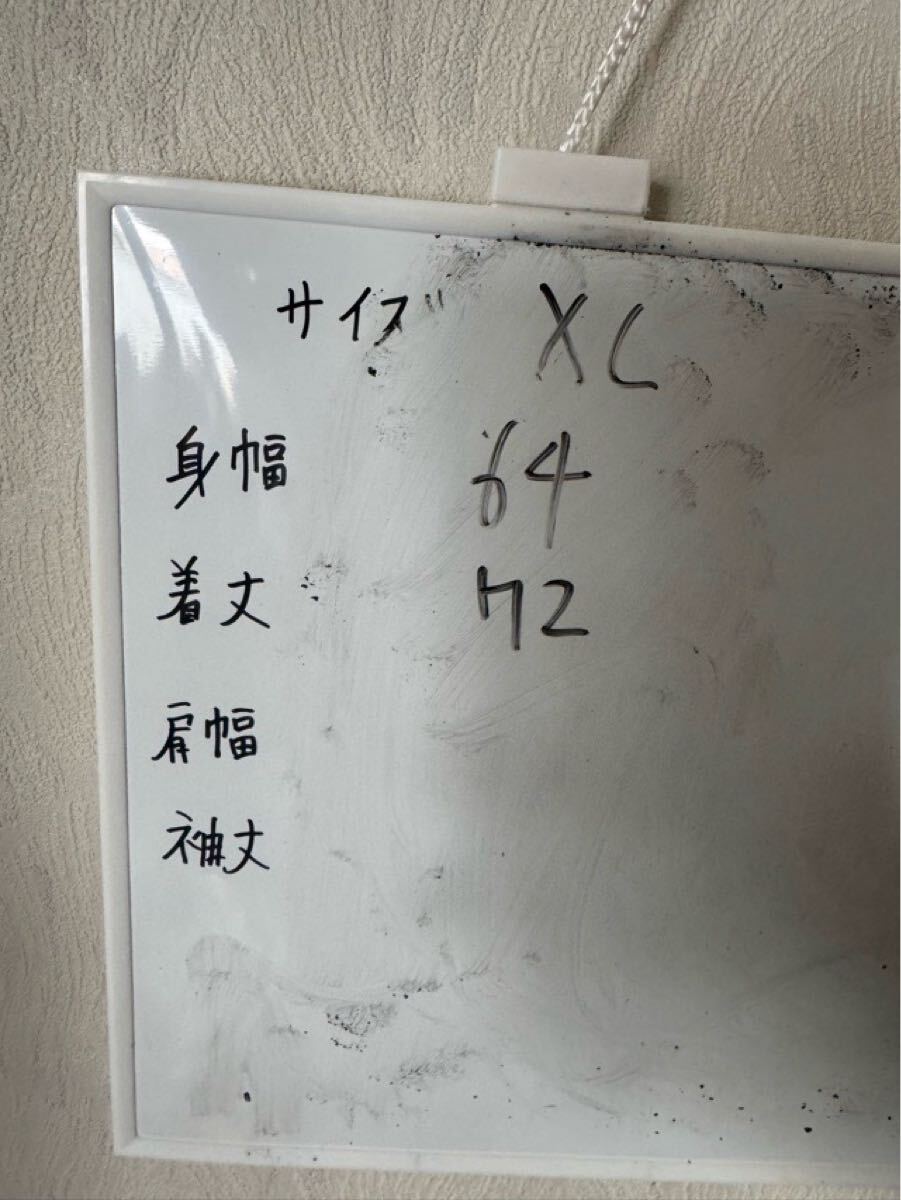 サイズ XL
身幅 64
着丈 72
肩幅
袖丈